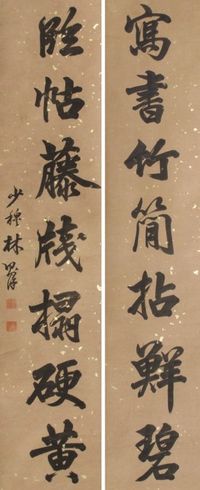 寫書竹簡拈鮮碧
臨帖藤牋搨硬黃
少穆林則徐